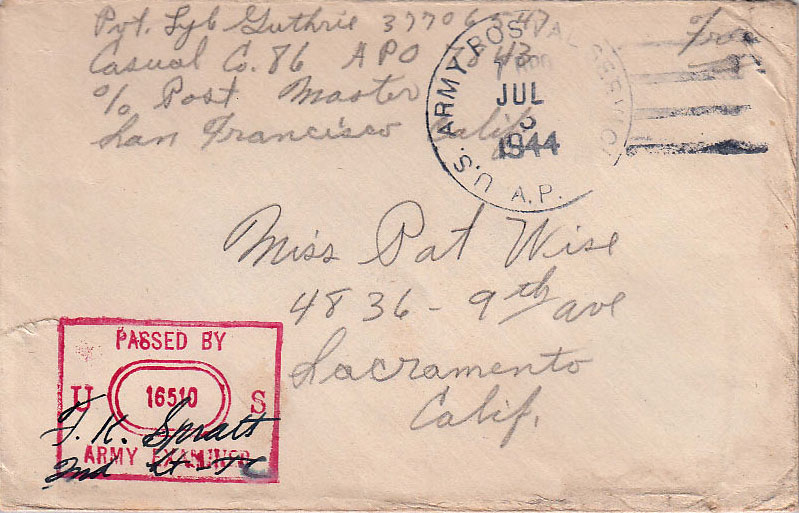 Pvt. Syl Guthrie 37706547
Casual Co. 86 APO 7843
c/o Post Master
San Francisco Calif
Free
U.S. ARMY POSTAL SERVICE
JUL
3
1944
A.P.
Miss Pat Wise
4836 - 9th ave
Sacramento
Calif.
PASSED BY
U 16510 S
ARMY EXAMINER
J. K. Spratt
2nd Lt - TC